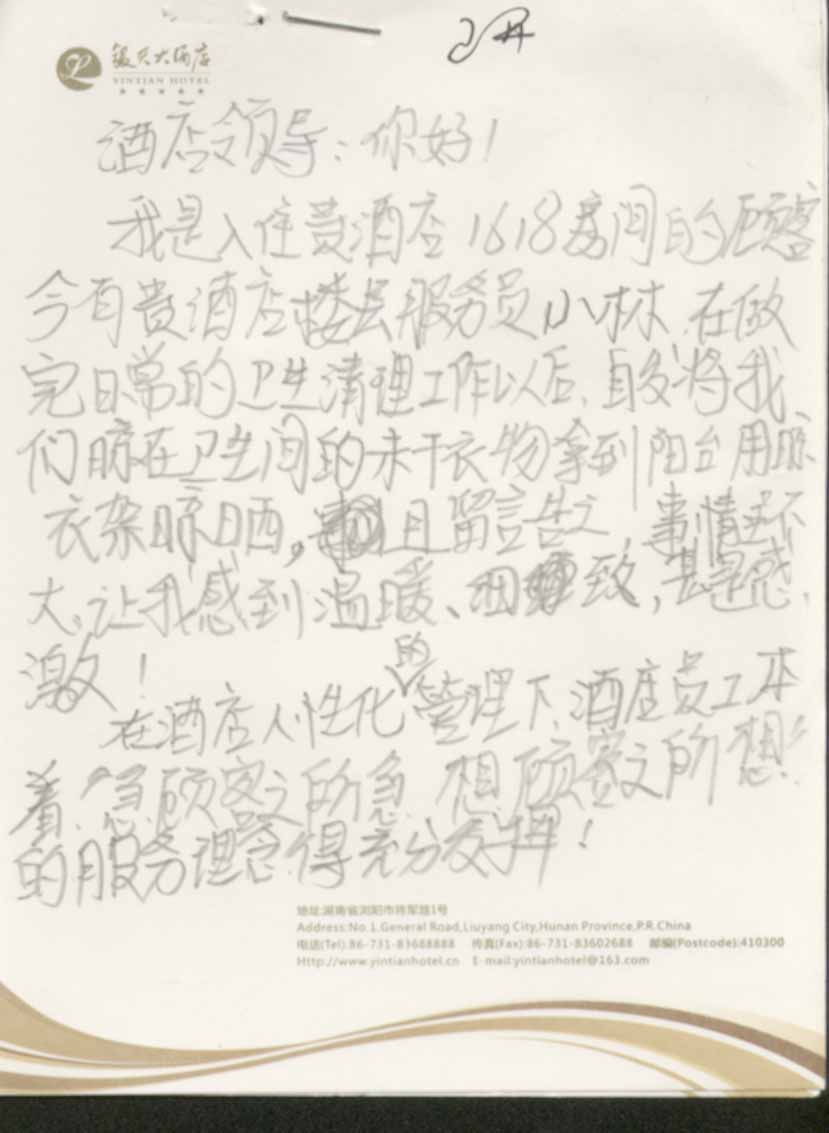 银天大酒店
YINTIAN HOTEL
酒店领导：你好！
我是入住贵酒店1618房间的顾客
今有贵酒店楼层服务员小林，在做
完日常的卫生清理工作以后，自发将我
们晾在卫生间的未干衣物拿到阳台用晾
衣架晾晒，且留言告之，事情虽不
大，让我感到温暖、细致，甚是感
激！
在酒店人性化的管理下，酒店员工本
着“急顾客之所急，想顾客之所想”
的服务理念得充分发挥！
地址:湖南省浏阳市将军路1号
Address:No.1.General Road,Liuyang City,Hunan Province,P.R.China
电话(Tel):86-731-83688888 传真(Fax):86-731-83602688 邮编(Postcode):410300
Http://www.yintianhotel.cn E-mail:yintianhotel@163.com